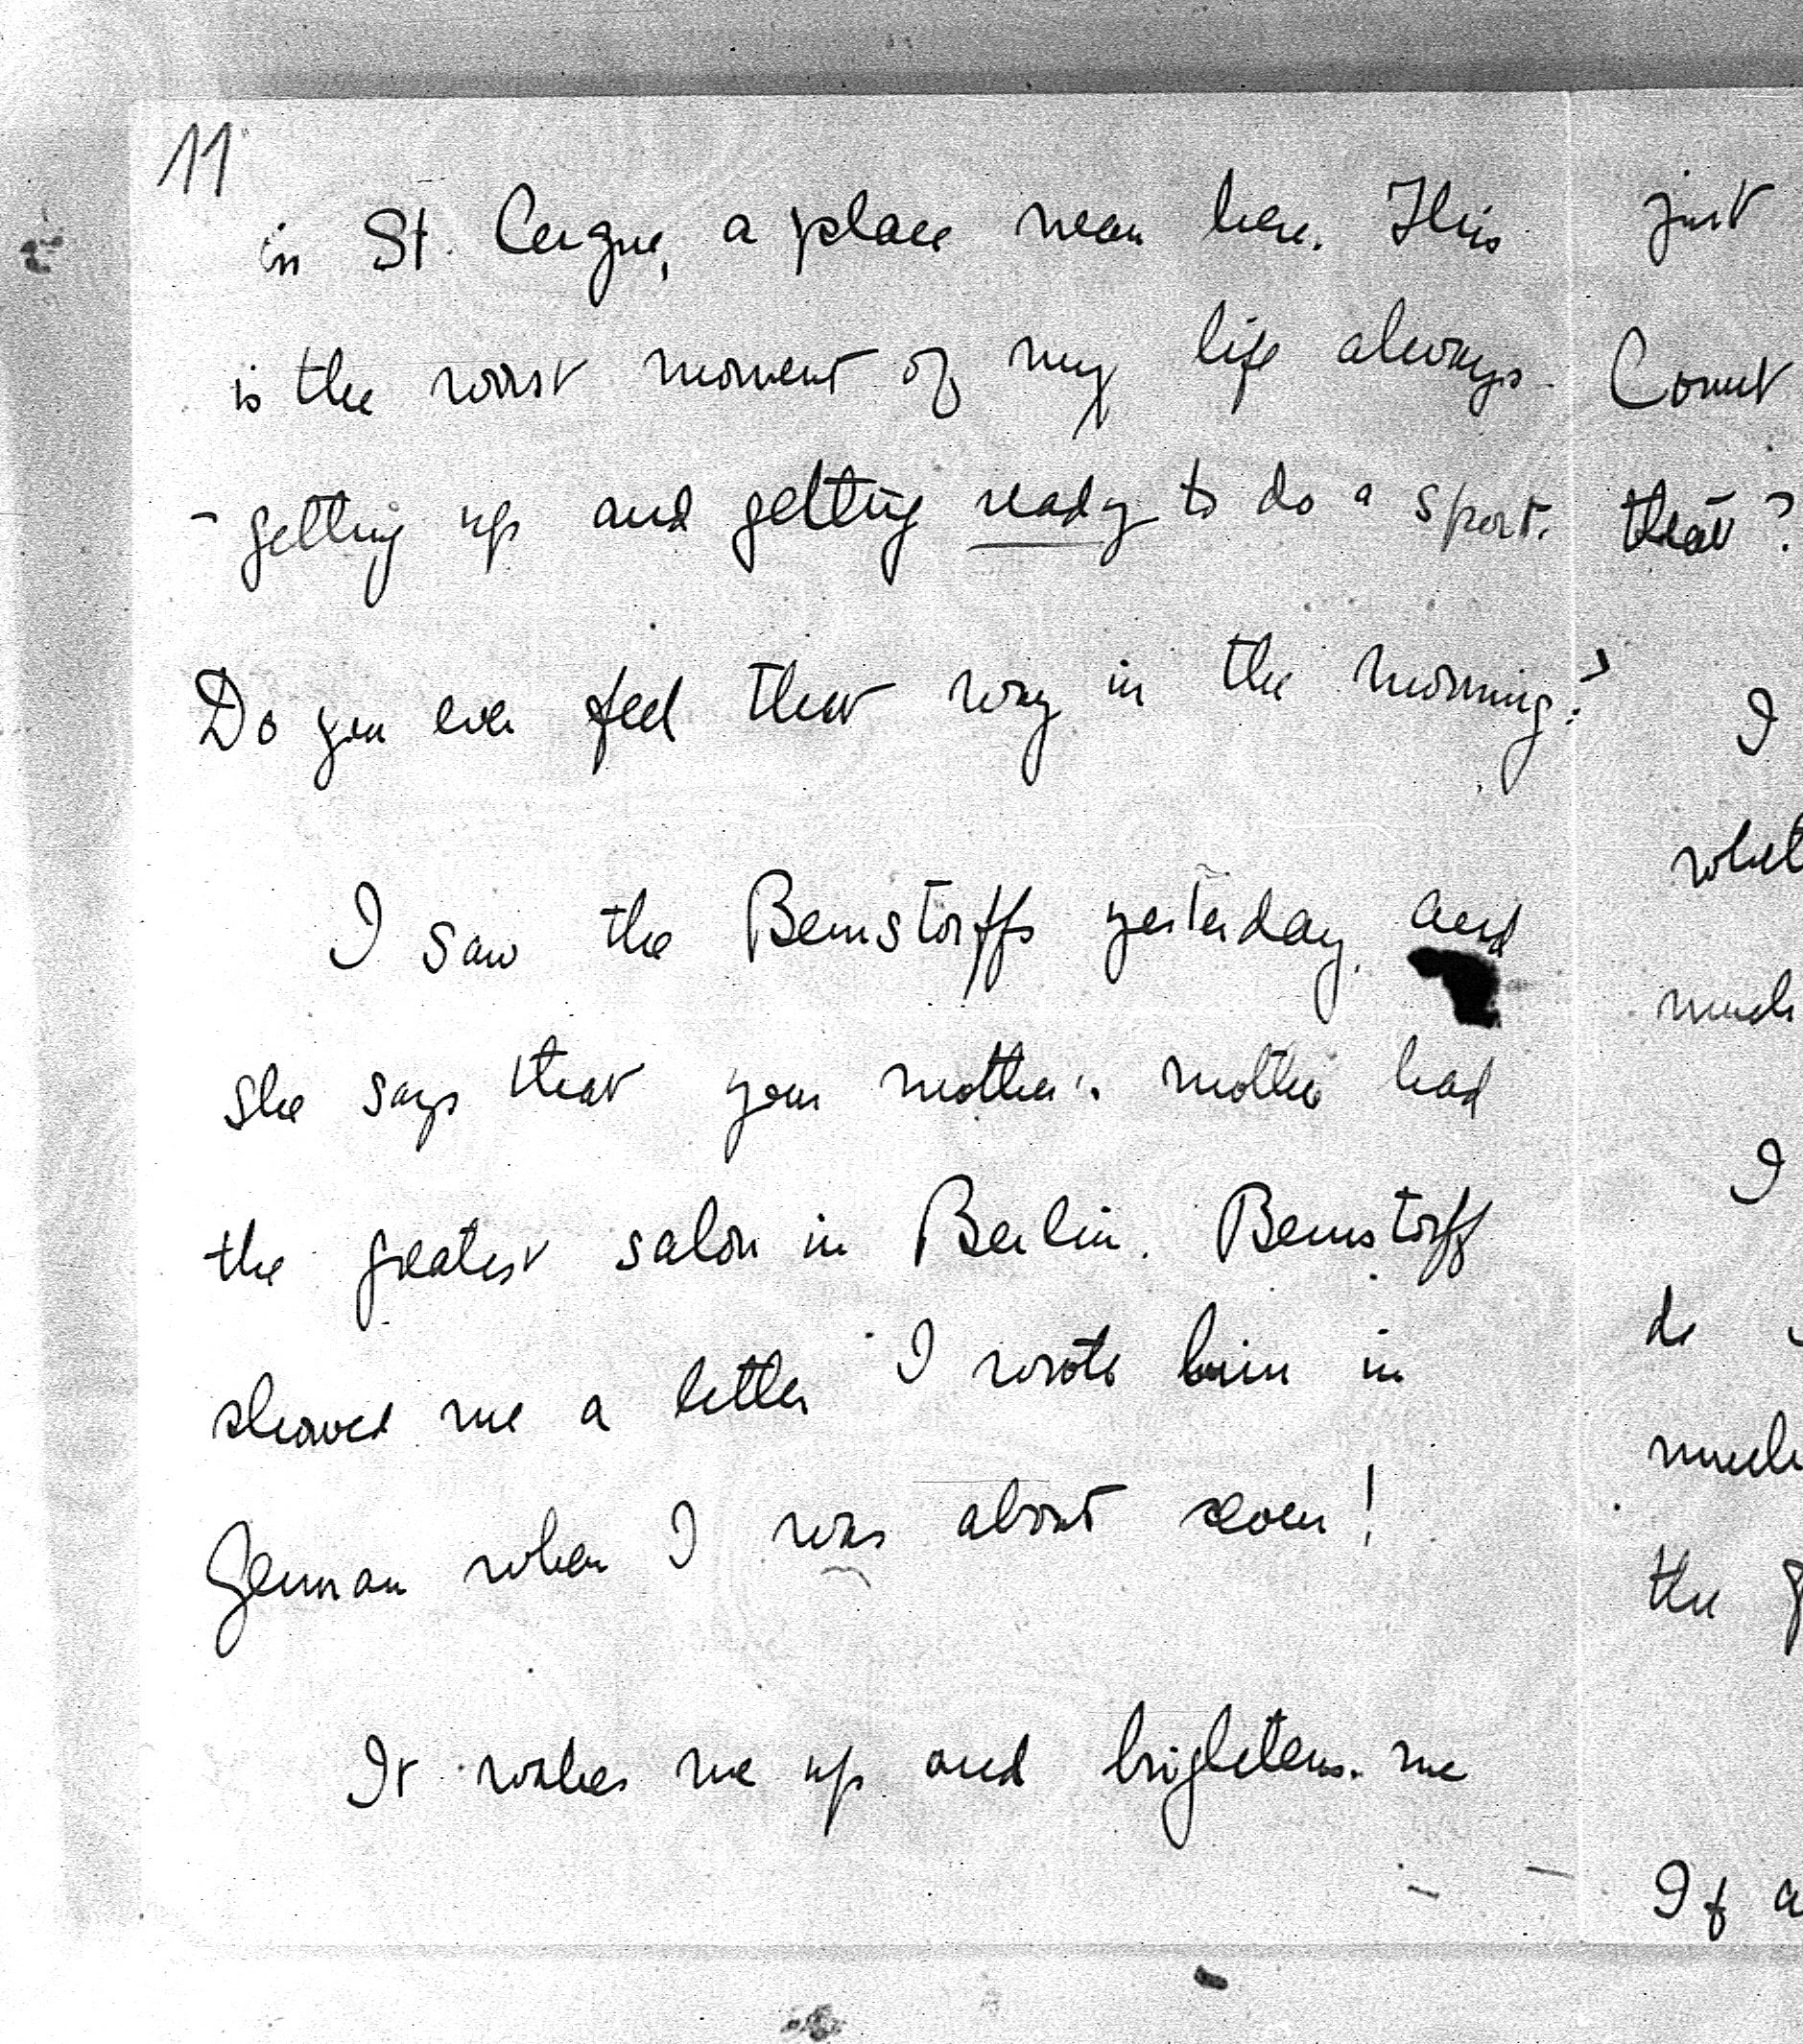 11
in St. Cergue, a place near here. This
is the worst moment of my life always
- getting up and getting ready to do a sport.
Do you ever feel that way in the morning?
I saw the Bernstorffs yesterday. and
she says that your mother's mother had
the greatest salon in Berlin. Bernstorff
showed me a letter I wrote him in
German when I was about seven!
It wakes me up and brightens me
just
Count
that?
I
what
much
I
do
much
the
If a